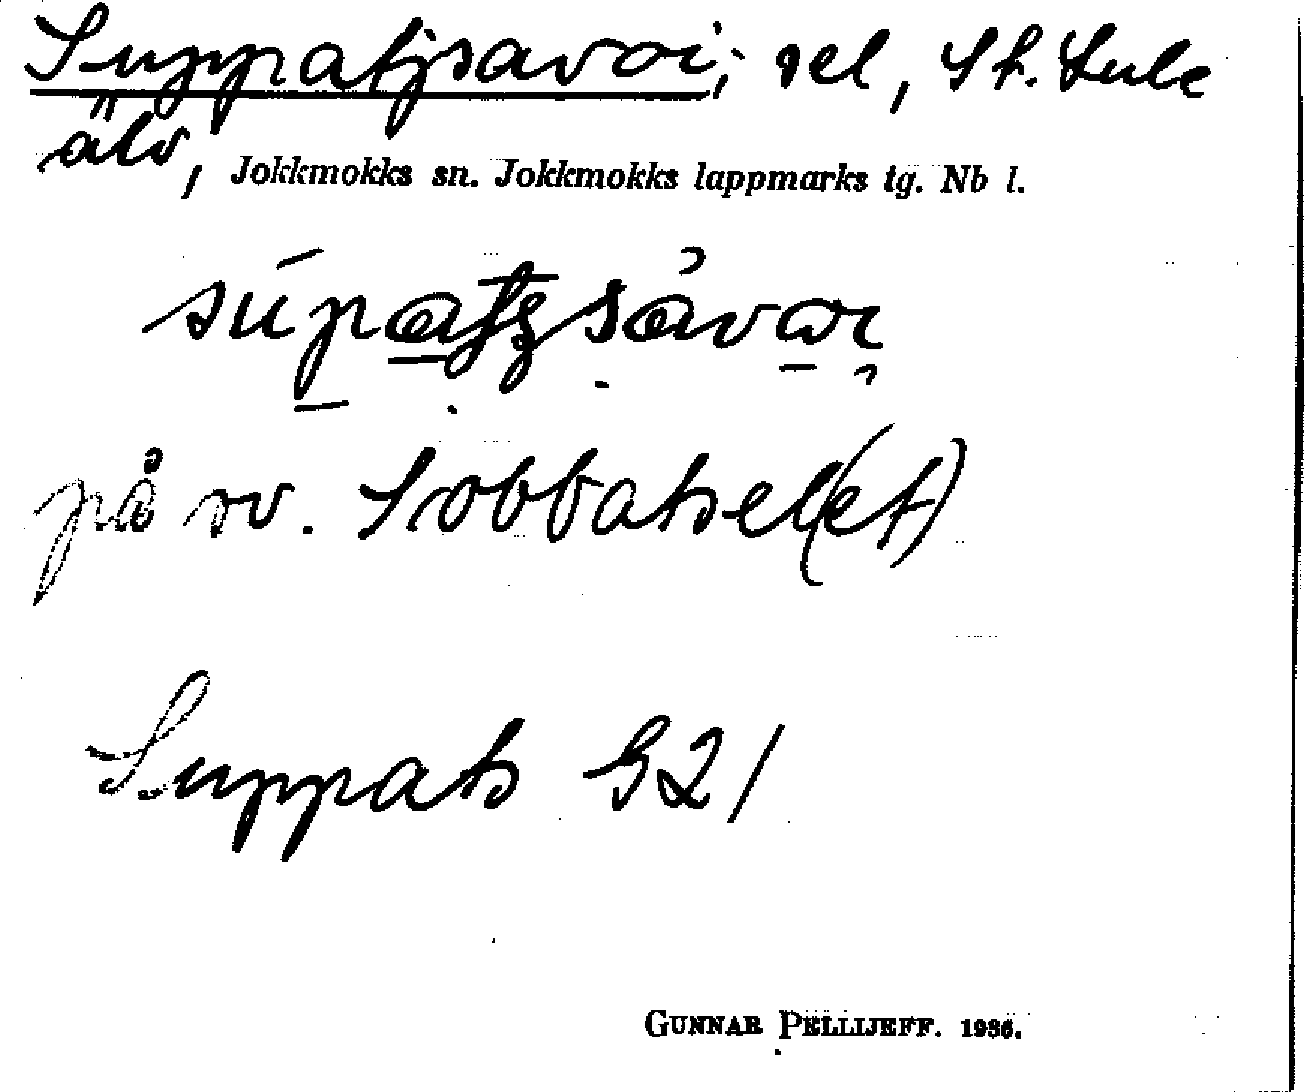 Suppatjsavoi; sel, St. Lule
älv, Jokkmokks sn. Jokkmokks lappmarks tg. Nb l.
på sv. Sobbatsel(et)
Suppats G21
GUNNAR PELLIJEFF. 1936.